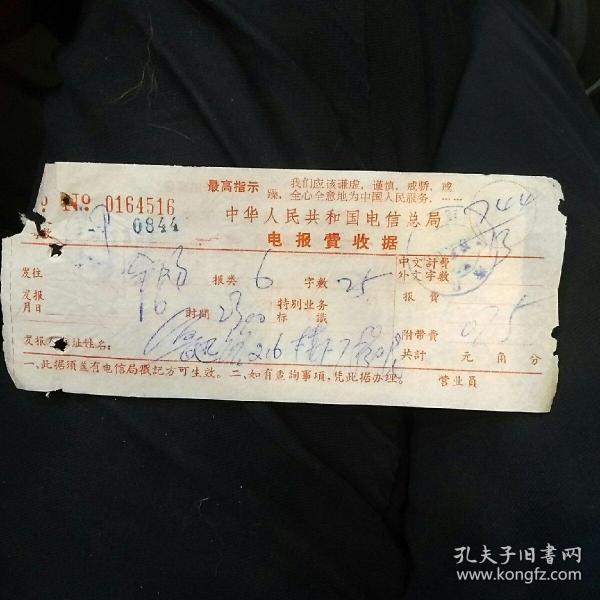 最高指示 我们应该谦虚,谨慎,戒骄,戒
躁,全心全意地为中国人民服务,……
No 0164516
中华人民共和国电信总局
0844
电报費收据
844
发往 报类 6 字数 25
中文計費
外文字数
发报
月日
时间 2300
特别业务
标識
报費
附带費
0.75
发报人住址姓名:
216 楼下7号
共計 元 角 分
一、此据须盖有电信局戳記方可生效。二、如有查詢事項,凭此据办理。 营业员
孔夫子旧書网
www.kongfz.com